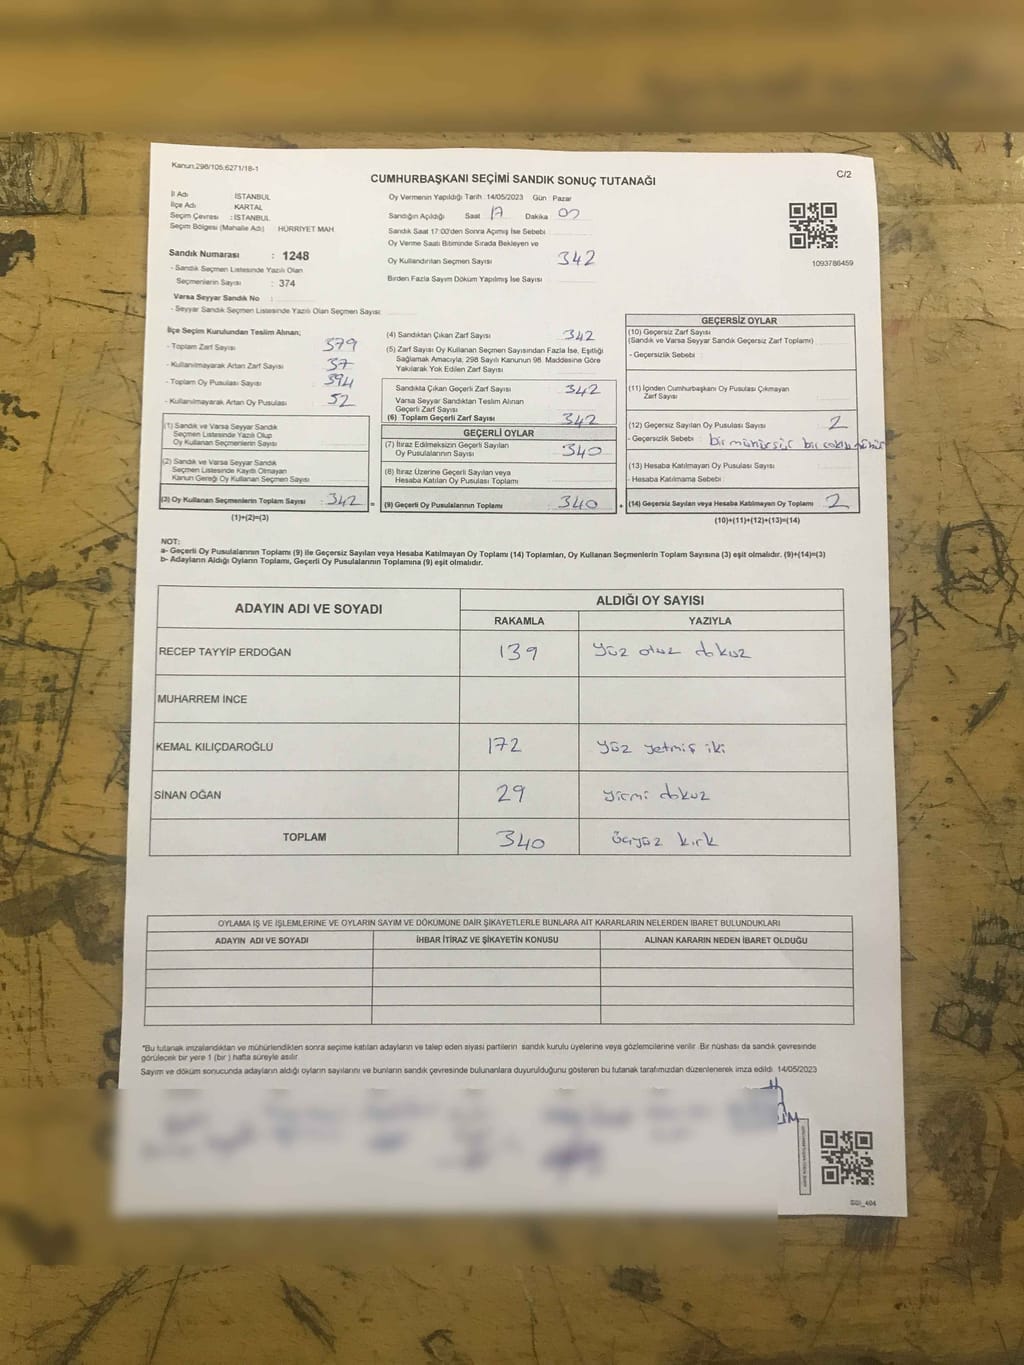 Kanun:298/105;6271/18-1
CUMHURBAŞKANI SEÇİMİ SANDIK SONUÇ TUTANAĞI
C/2
İl Adı : İSTANBUL
İlçe Adı : KARTAL
Seçim Çevresi : İSTANBUL
Seçim Bölgesi (Mahalle Adı) HÜRRİYET MAH
Sandık Numarası : 1248
- Sandık Seçmen Listesinde Yazılı Olan
Seçmenlerin Sayısı : 374
Varsa Seyyar Sandık No :
- Seyyar Sandık Seçmen Listesinde Yazılı Olan Seçmen Sayısı:
Oy Vermenin Yapıldığı Tarih :14/05/2023 Gün Pazar
Sandığın Açıldığı Saat 17 Dakika 00
Sandık Saat 17:00'den Sonra Açılmış İse Sebebi
Oy Verme Saati Bitiminde Sırada Bekleyen ve
Oy Kullandırılan Seçmen Sayısı 342
Birden Fazla Sayım Döküm Yapılmış İse Sayısı
1093786459
İlçe Seçim Kurulundan Teslim Alınan;
- Toplam Zarf Sayısı 379
- Kullanılmayarak Artan Zarf Sayısı 37
- Toplam Oy Pusulası Sayısı 394
- Kullanılmayarak Artan Oy Pusulası 52
(1) Sandık ve Varsa Seyyar Sandık
Seçmen Listesinde Yazılı Olup
Oy Kullanan Seçmenlerin Sayısı
(2) Sandık ve Varsa Seyyar Sandık
Seçmen Listesinde Kayıtlı Olmayan
Kanun Gereği Oy Kullanan Seçmen Sayısı
(3) Oy Kullanan Seçmenlerin Toplam Sayısı : 342 =
(1)+(2)=(3)
(4) Sandıktan Çıkan Zarf Sayısı 342
(5) Zarf Sayısı Oy Kullanan Seçmen Sayısından Fazla İse, Eşitliği
Sağlamak Amacıyla, 298 Sayılı Kanunun 98. Maddesine Göre
Yakılarak Yok Edilen Zarf Sayısı
Sandıkta Çıkan Geçerli Zarf Sayısı 342
Varsa Seyyar Sandıktan Teslim Alınan
Geçerli Zarf Sayısı
(6) Toplam Geçerli Zarf Sayısı 342
GEÇERLİ OYLAR
(7) İtiraz Edilmeksizin Geçerli Sayılan
Oy Pusulalarının Sayısı 340
(8) İtiraz Üzerine Geçerli Sayılan veya
Hesaba Katılan Oy Pusulası Toplamı
(9) Geçerli Oy Pusulalarının Toplamı 340 +
GEÇERSİZ OYLAR
(10) Geçersiz Zarf Sayısı
(Sandık ve Varsa Seyyar Sandık Geçersiz Zarf Toplamı)
- Geçersizlik Sebebi :
(11) İçinden Cumhurbaşkanı Oy Pusulası Çıkmayan
Zarf Sayısı
(12) Geçersiz Sayılan Oy Pusulası Sayısı 2
- Geçersizlik Sebebi : bir mühürsüz bir
(13) Hesaba Katılmayan Oy Pusulası Sayısı
- Hesaba Katılmama Sebebi :
(14) Geçersiz Sayılan veya Hesaba Katılmayan Oy Toplamı 2
(10)+(11)+(12)+(13)=(14)
NOT:
a- Geçerli Oy Pusulalarının Toplamı (9) ile Geçersiz Sayılan veya Hesaba Katılmayan Oy Toplamı (14) Toplamları, Oy Kullanan Seçmenlerin Toplam Sayısına (3) eşit olmalıdır. (9)+(14)=(3)
b- Adayların Aldığı Oyların Toplamı, Geçerli Oy Pusulalarının Toplamına (9) eşit olmalıdır.
ADAYIN ADI VE SOYADI
ALDIĞI OY SAYISI
RAKAMLA YAZIYLA
RECEP TAYYİP ERDOĞAN 139 yüz otuz dokuz
MUHARREM İNCE
KEMAL KILIÇDAROĞLU 172 yüz yetmiş iki
SİNAN OĞAN 29 yirmi dokuz
TOPLAM 340 üçyüz kırk
OYLAMA İŞ VE İŞLEMLERİNE VE OYLARIN SAYIM VE DÖKÜMÜNE DAİR ŞİKAYETLERLE BUNLARA AİT KARARLARIN NELERDEN İBARET BULUNDUKLARI
ADAYIN ADI VE SOYADI İHBAR İTİRAZ VE ŞİKAYETİN KONUSU ALINAN KARARIN NEDEN İBARET OLDUĞU
*Bu tutanak imzalandıktan ve mühürlendikten sonra seçime katılan adayların ve talep eden siyasi partilerin sandık kurulu üyelerine veya gözlemcilerine verilir. Bir nüshası da sandık çevresinde
görülecek bir yere 1 (bir) hafta süreyle asılır
Sayım ve döküm sonucunda adayların aldığı oyların sayılarını ve bunların sandık çevresinde bulunanlara duyurulduğunu gösteren bu tutanak tarafımızdan düzenlenerek imza edildi. 14/05/2023